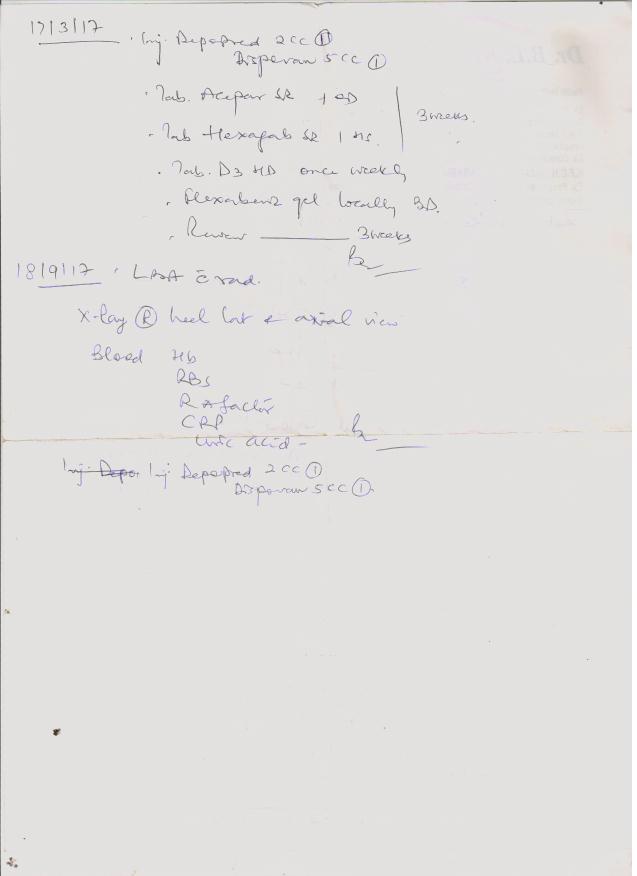 17/3/17
. Inj. Depopred 2cc ①
Disperan 5cc ①
. Tab. Acepar SR 1 OD
. Tab Hexagab SR 1 HS
3 weeks.
. Tab. D3 HD once weekly
. Flexabenz gel locally BD.
. Review 3 weeks
18/9/17
X-ray Ⓡ heel lat & axial view
Blood Hb
RBS
RA factor
CRP
Uric acid -
Inj. Depo. Inj Depopred 2cc ①
Disperan 5cc ①